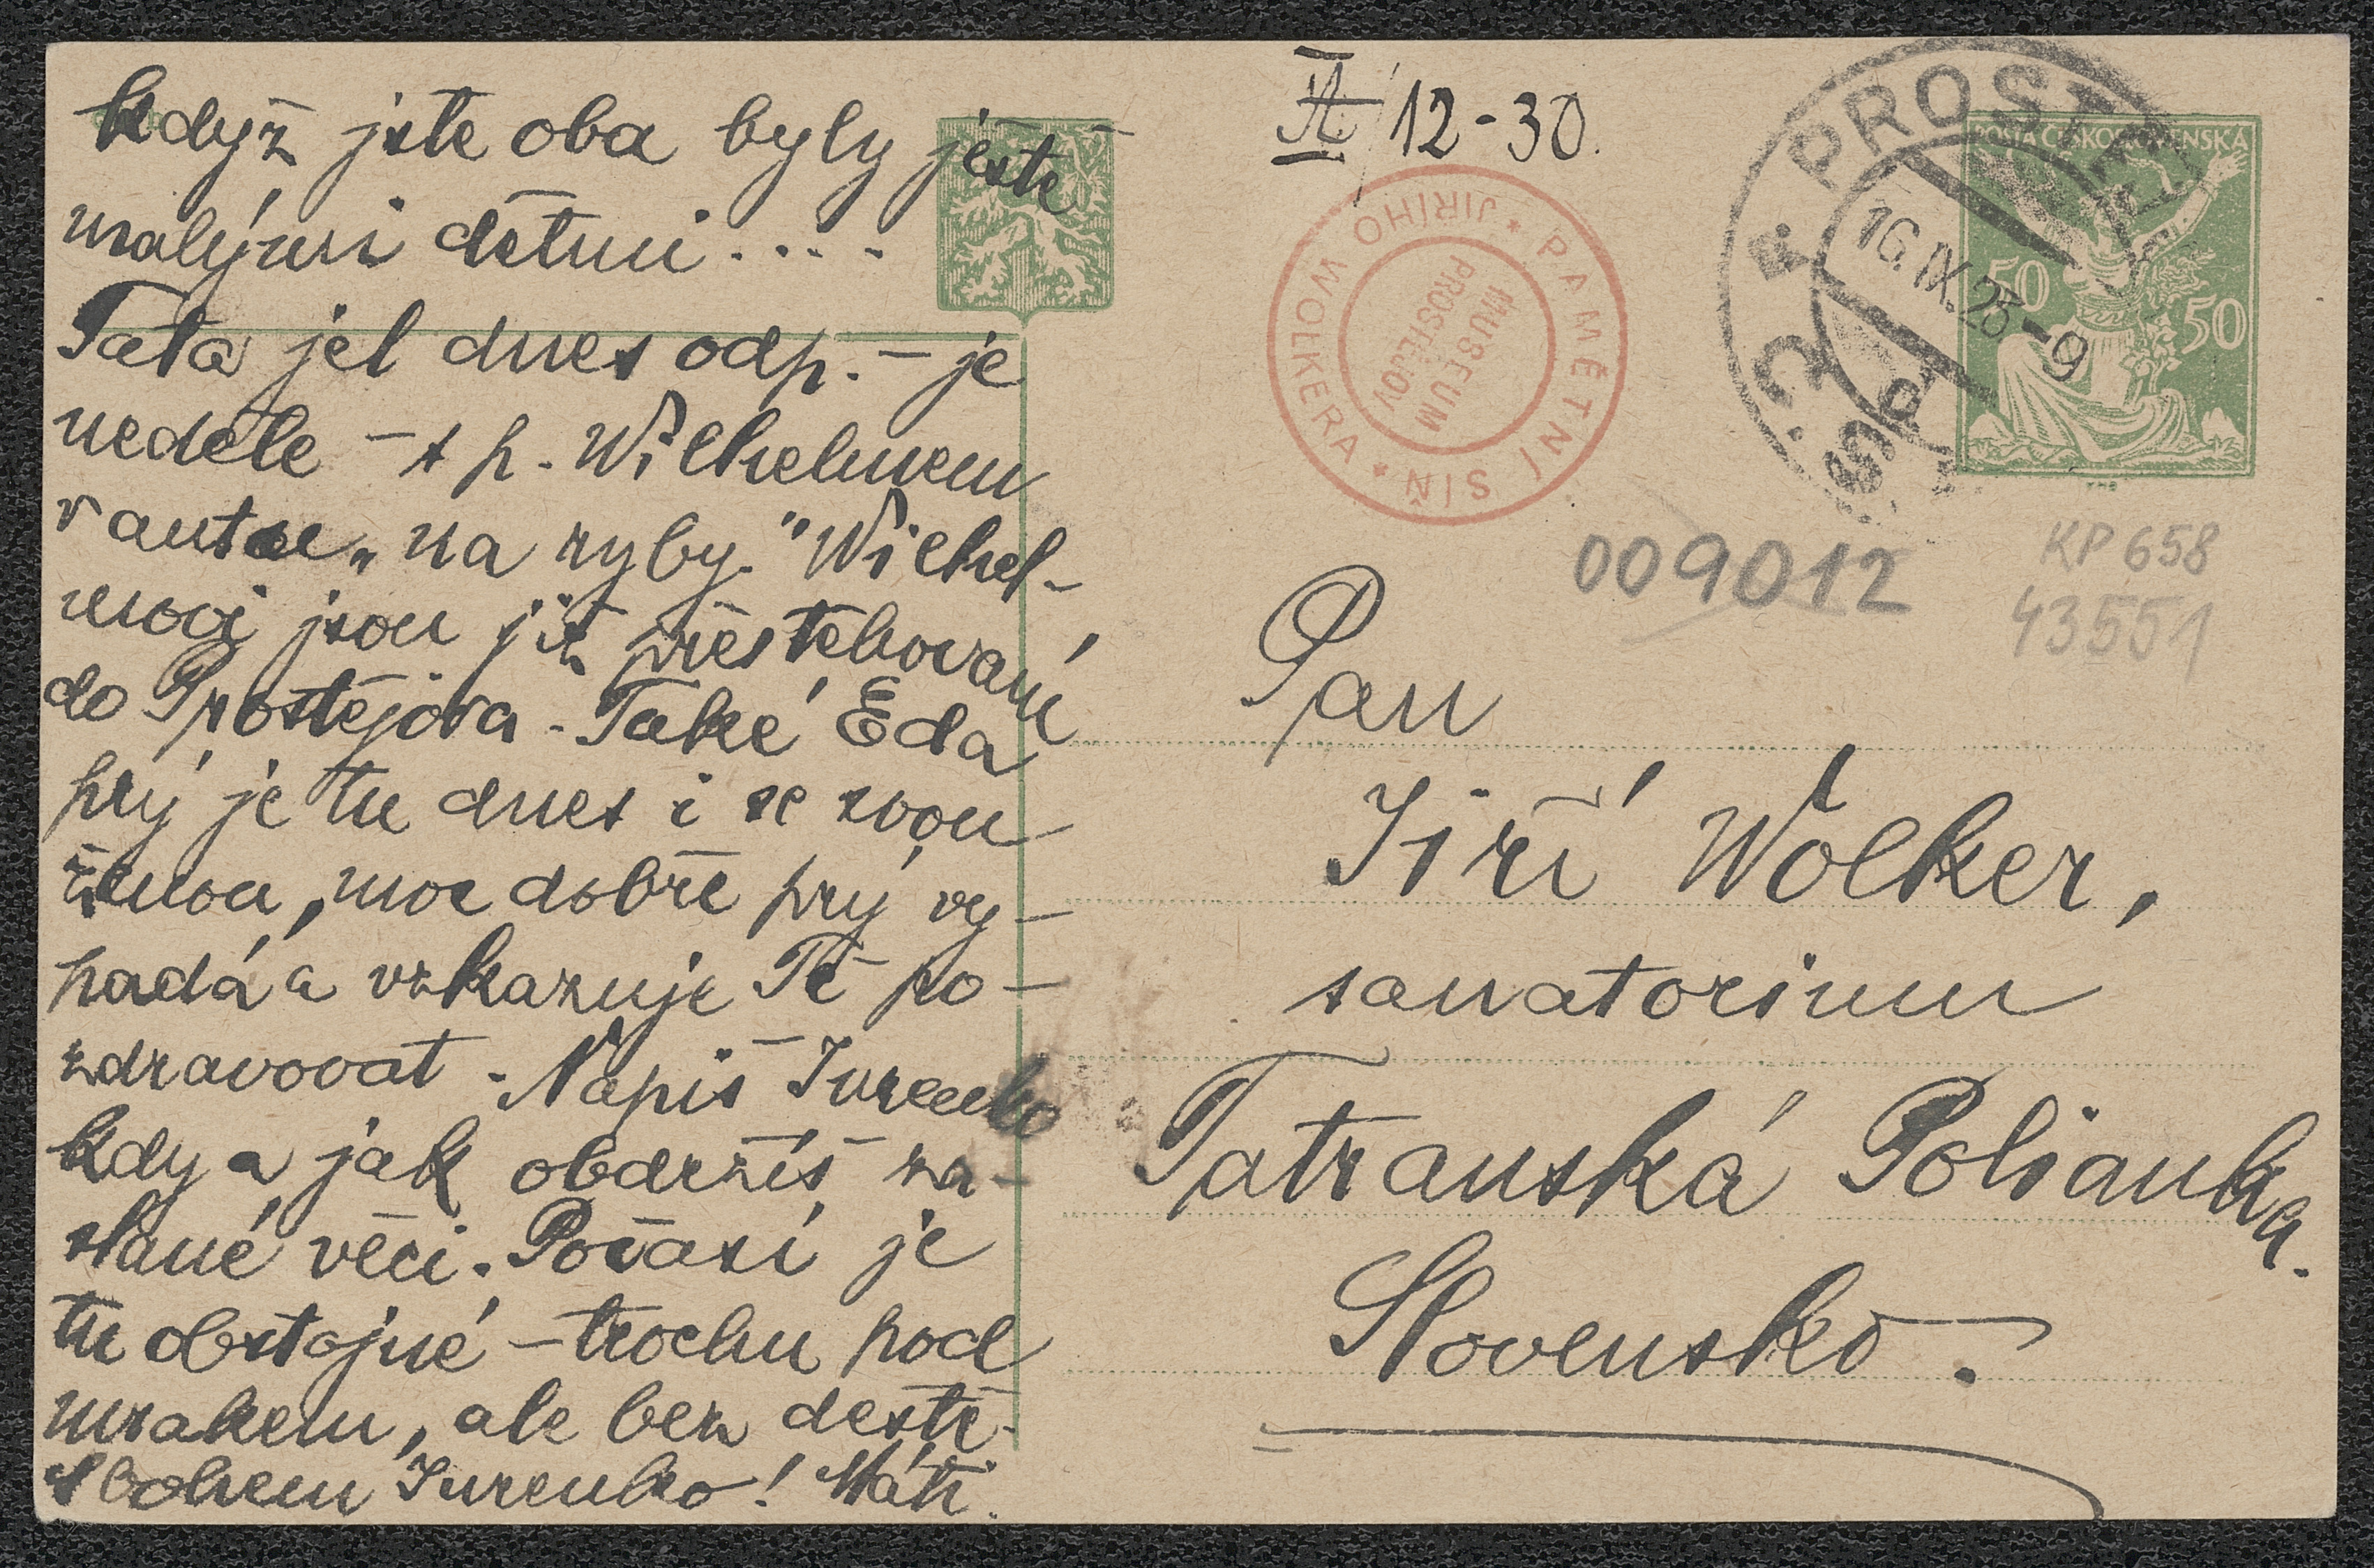 když jste oba byly ještě
malými dětmi....
Tata jel dnes odp. – je
neděle – s p. Wilhelmem
v autu „na ryby." Wilhel-
movi jsou již přestěhovaní
do Prostějova. Také Eda
prý je tu dnes i se svou
ženou, moc dobře prý vy-
padá a vzkazuje Tě po-
zdravovat. Napiš Jurenko
kdy a jak obdržíš za-
slané věci. Počasí je
tu obstojné – trochu pod
mrakem, ale bez deště.
S bohem Jurenko! Máti.
12-30.
PAMĚTNÍ SÍŇ * JIŘÍHO WOLKERA *
MUSEUM
PROSTĚJOV
16.IX.23-9
d
POŠTA ČESKOSLOVENSKÁ
50 50
009012
KP 658
43551
Pan
Jiří Wolker,
sanatorium
Tatranská Polianka.
Slovensko.